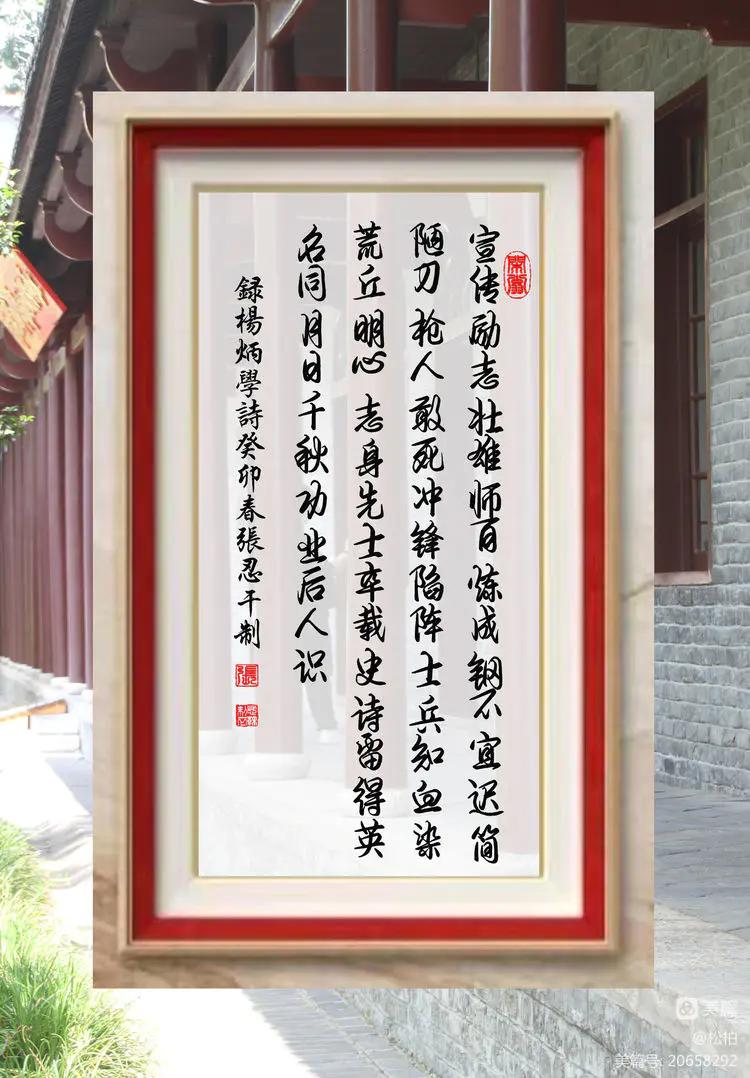 宣传励志壮雄师百炼成钢不宜迟简
陋刀枪人敢死冲锋陷阵士兵知血染
荒丘明心志身先士卒载史诗留得英
名同月日千秋功业后人识
録楊炳學詩癸卯春張忍干制
張
美篇
@松柏
美篇号: 20658292